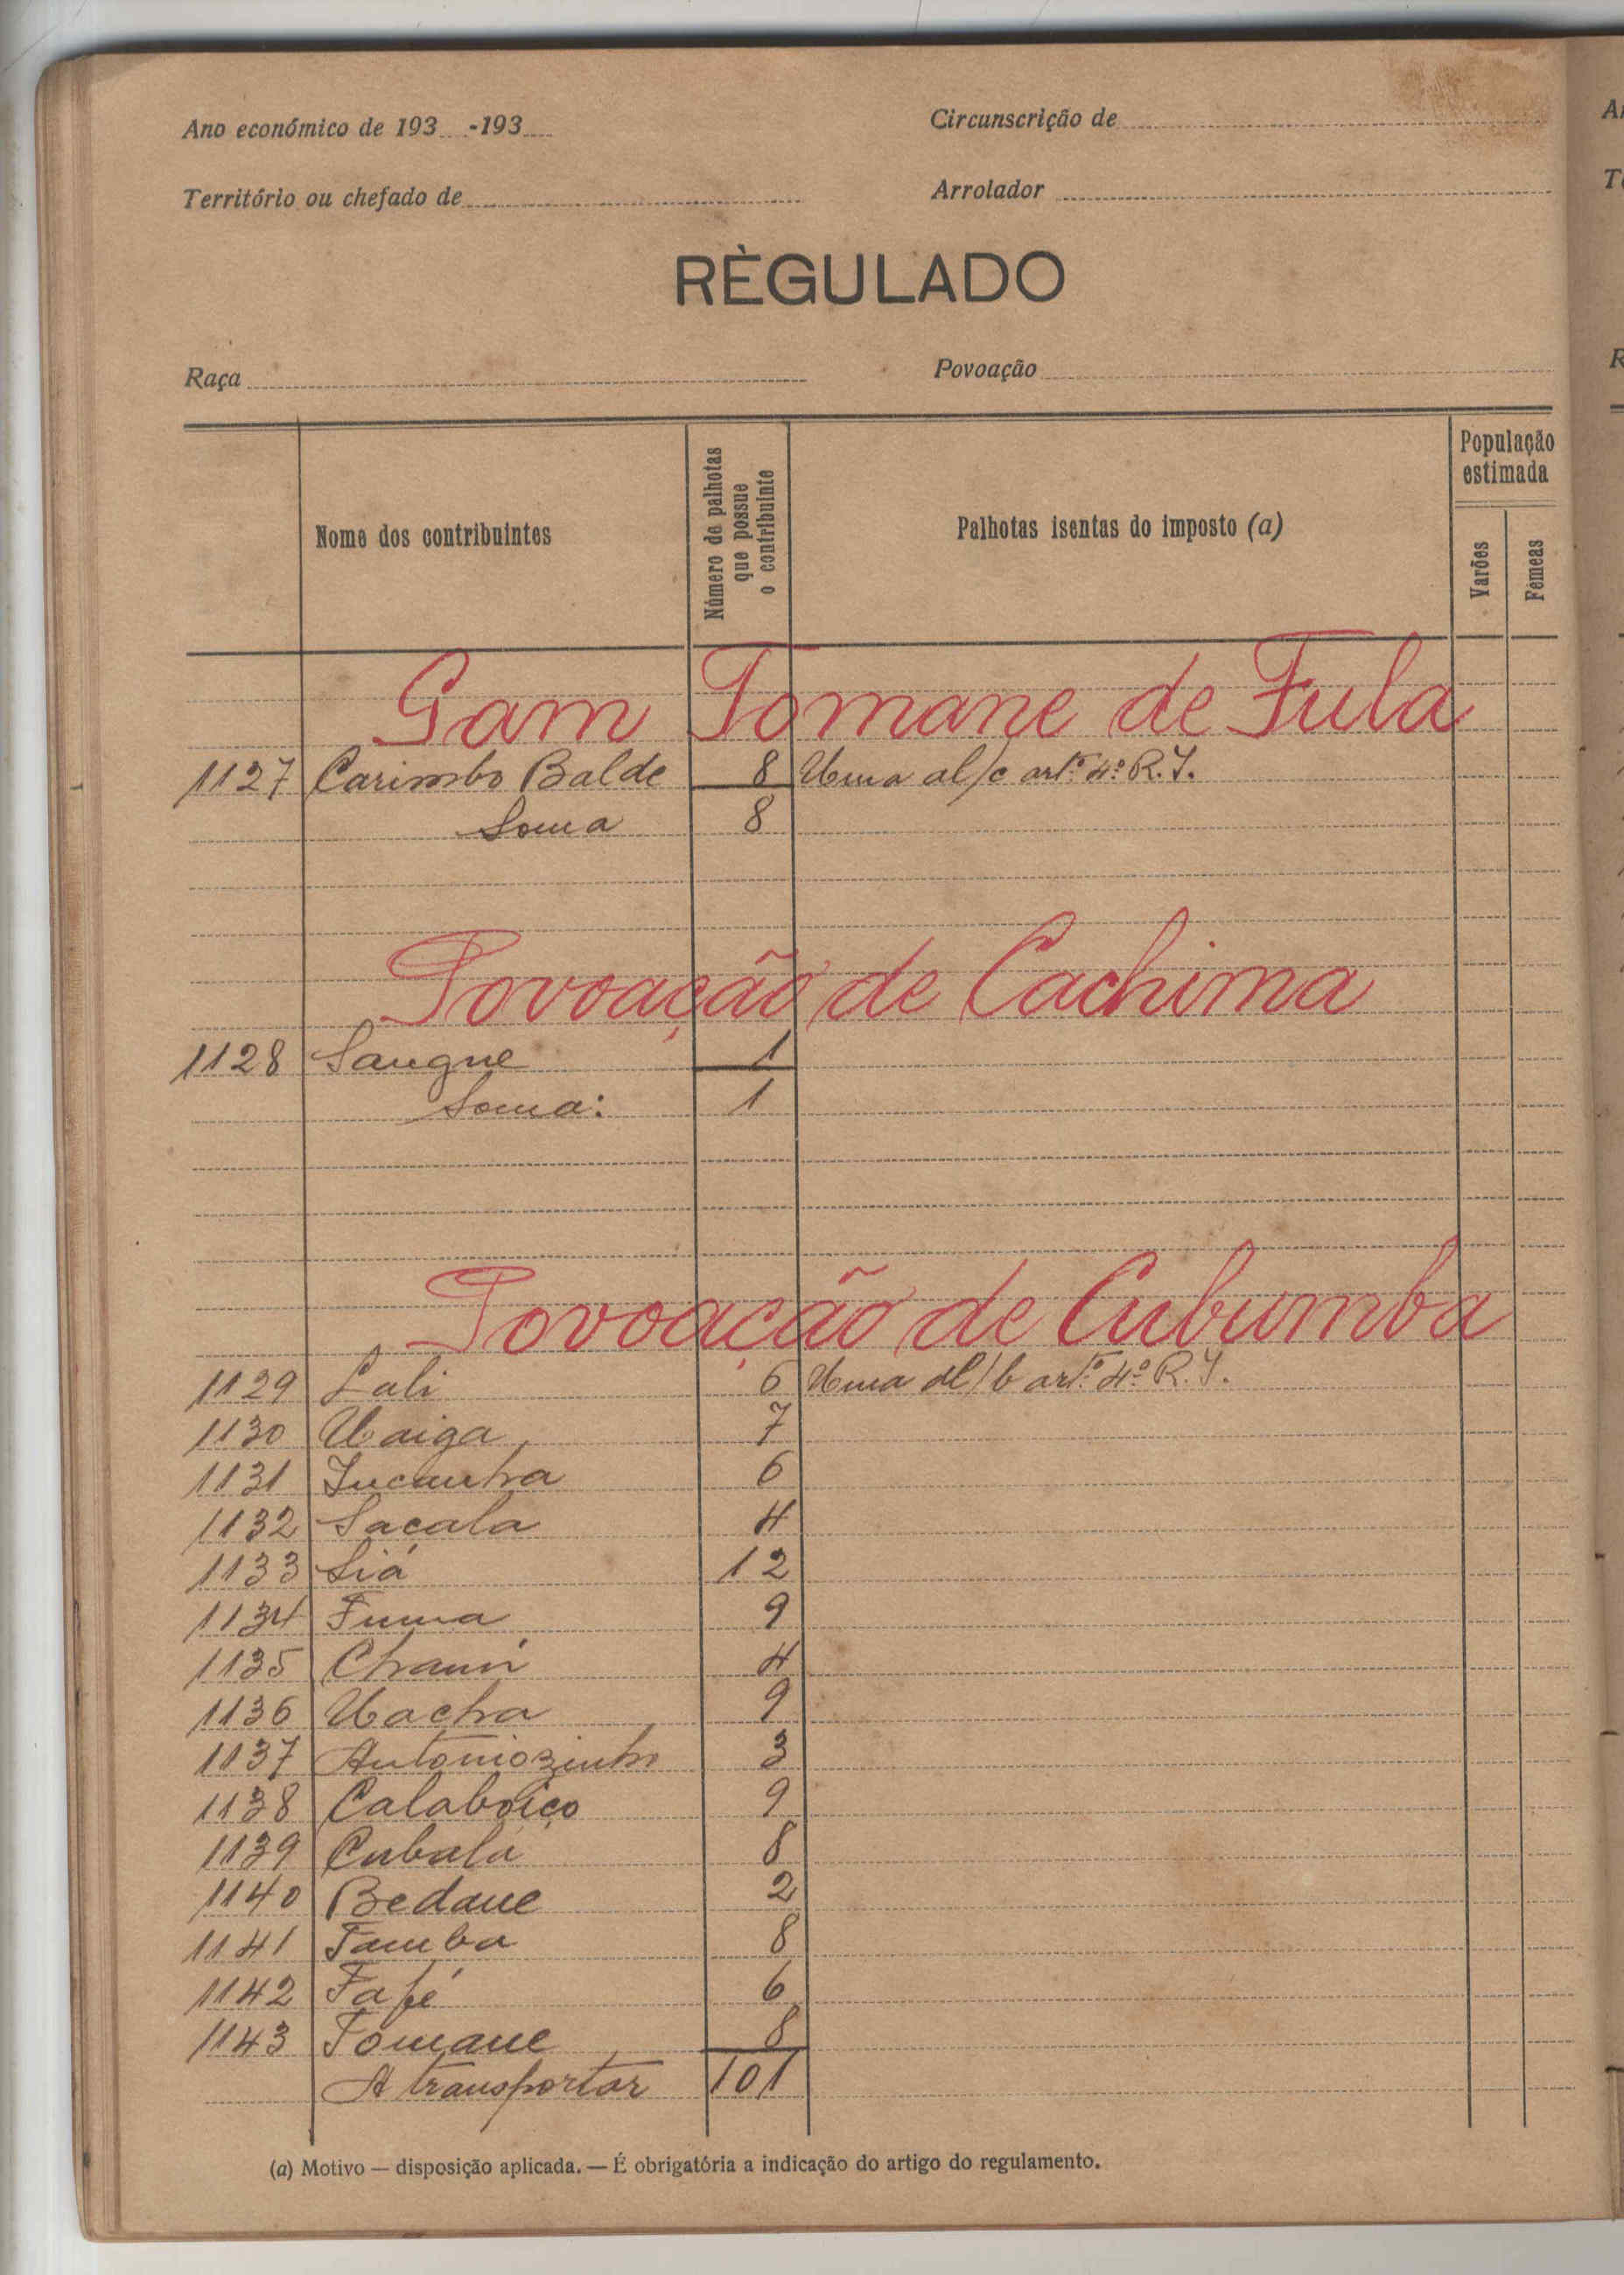 Ano económico de 193 -193
Circunscrição de
Território ou chefado de
Arrolador
RÈGULADO
Raça
Povoação
Nome dos contribuintes
Número de palhotas que possue o contribuinte
Palhotas isentas do imposto (a)
População estimada
Varões
Fêmeas
Gam Tomane de Fula
1127 Carimbo Balde 8 Uma al/c artº 4º R.I.
Soma 8
Povoação de Cachima
1128 Sangue 1
Soma: 1
Povoação de Cubumba
1129 Lali 6 Uma al/b artº 4º R.I.
1130 Uaiga 7
1131 Incanha 6
1132 Sacala 4
1133 Siá 12
1134 Fuma 9
1135 4
1136 Uacha 9
1137 Antoniozinho 3
1138 Calaboiço 9
1139 Cubala 8
1140 Bedane 2
1141 Tamba 8
1142 Fafé 6
1143 Tomane 8
A transportar 101
(a) Motivo — disposição aplicada. — É obrigatória a indicação do artigo do regulamento.